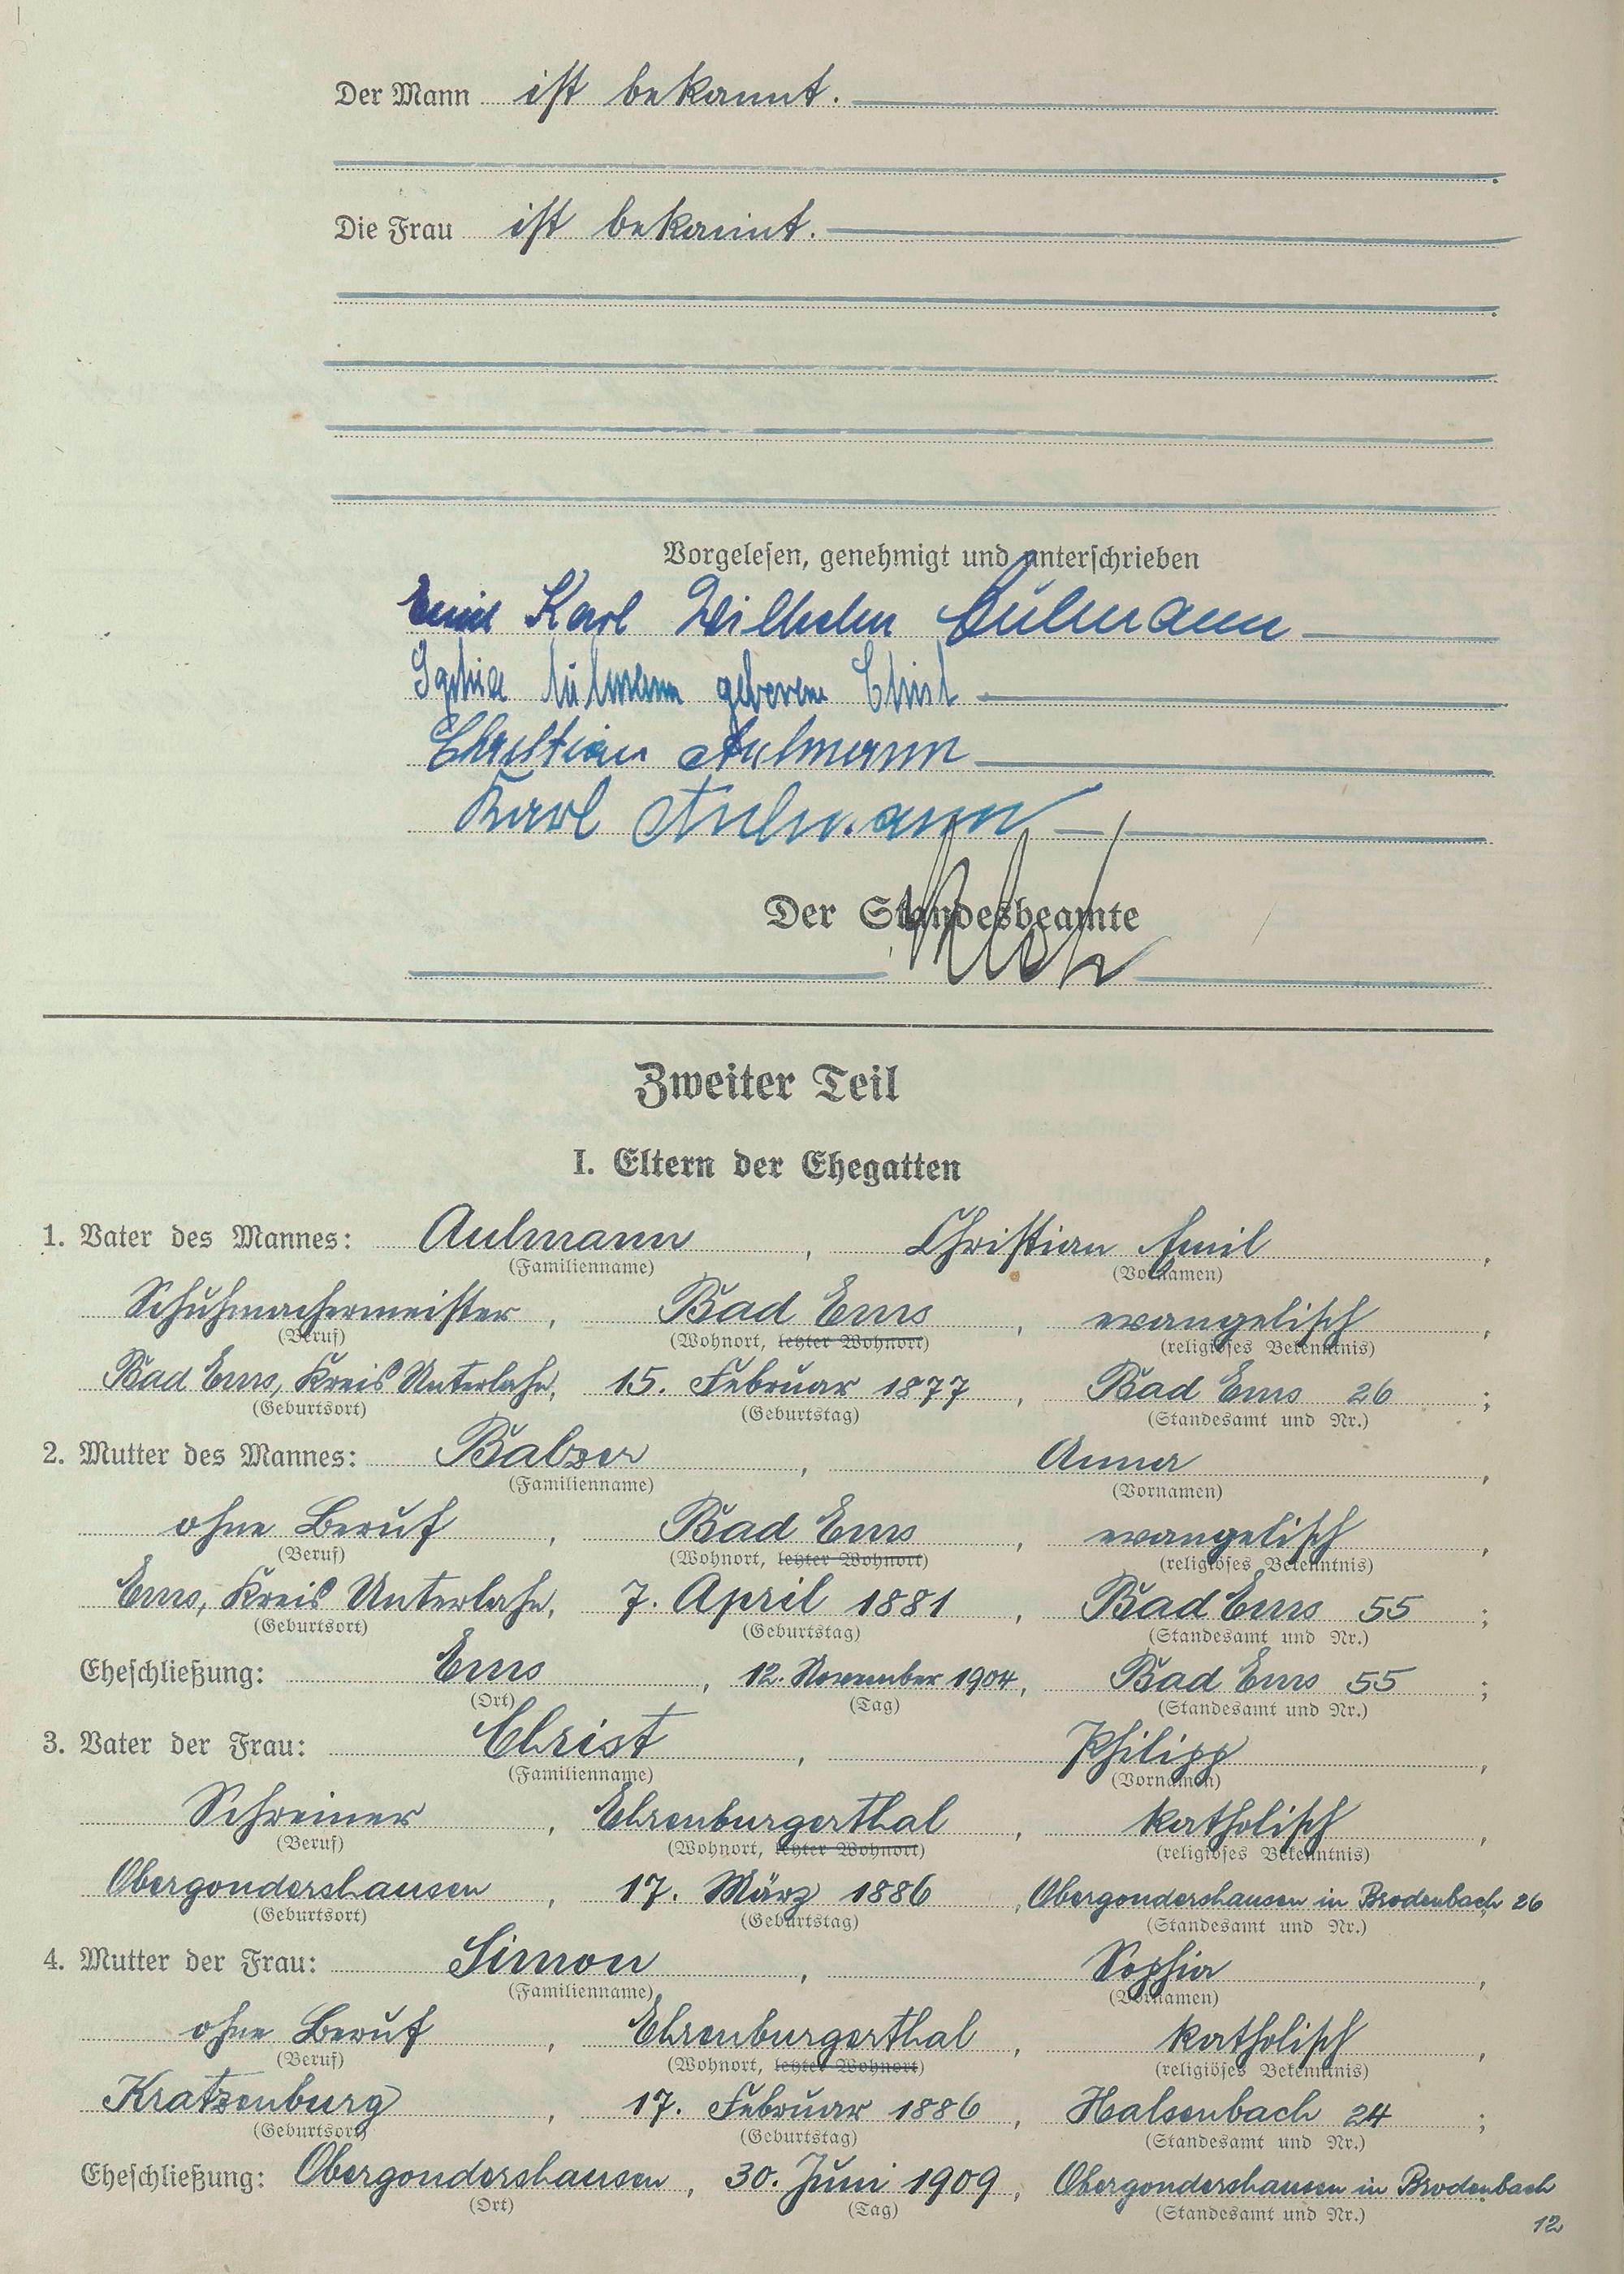 Der Mann ist bekannt.
Die Frau ist bekannt.
Vorgelesen, genehmigt und unterschrieben
Emil Karl Wilhelm Aulmann
Sophie Aulmann geborene Christ
Christian Aulmann
Karl Aulmann
Der Standesbeamte
Zweiter Teil
I. Eltern der Ehegatten
1. Vater des Mannes: Aulmann, Christian Emil,
(Familienname) (Vornamen)
Schuhmachermeister, Bad Ems, evangelisch,
(Beruf) (Wohnort, letzter Wohnort) (religiöses Bekenntnis)
Bad Ems, Kreis Unterlahn, 15. Februar 1877, Bad Ems 26;
(Geburtsort) (Geburtstag) (Standesamt und Nr.)
2. Mutter des Mannes: Balzer, Anna,
(Familienname) (Vornamen)
ohne Beruf, Bad Ems, evangelisch,
(Beruf) (Wohnort, letzter Wohnort) (religiöses Bekenntnis)
Ems, Kreis Unterlahn, 7. April 1881, Bad Ems 55;
(Geburtsort) (Geburtstag) (Standesamt und Nr.)
Eheschließung: Ems, 12. November 1904, Bad Ems 55;
(Ort) (Tag) (Standesamt und Nr.)
3. Vater der Frau: Christ, Philipp,
(Familienname) (Vornamen)
Schreiner, Ehrenburgerthal, katholisch,
(Beruf) (Wohnort, letzter Wohnort) (religiöses Bekenntnis)
Obergondershausen, 17. März 1886, Obergondershausen in Brodenbach 26
(Geburtsort) (Geburtstag) (Standesamt und Nr.)
4. Mutter der Frau: Simon, Sophia,
(Familienname) (Vornamen)
ohne Beruf, Ehrenburgerthal, katholisch,
(Beruf) (Wohnort, letzter Wohnort) (religiöses Bekenntnis)
Kratzenburg, 17. Februar 1886, Halsenbach 24;
(Geburtsort) (Geburtstag) (Standesamt und Nr.)
Eheschließung: Obergondershausen, 30. Juni 1909, Obergondershausen in Brodenbach
(Ort) (Tag) (Standesamt und Nr.)
12